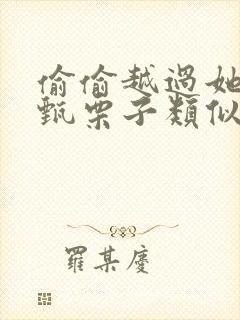 偷偷越過她
甄栗子類似
羅某慶